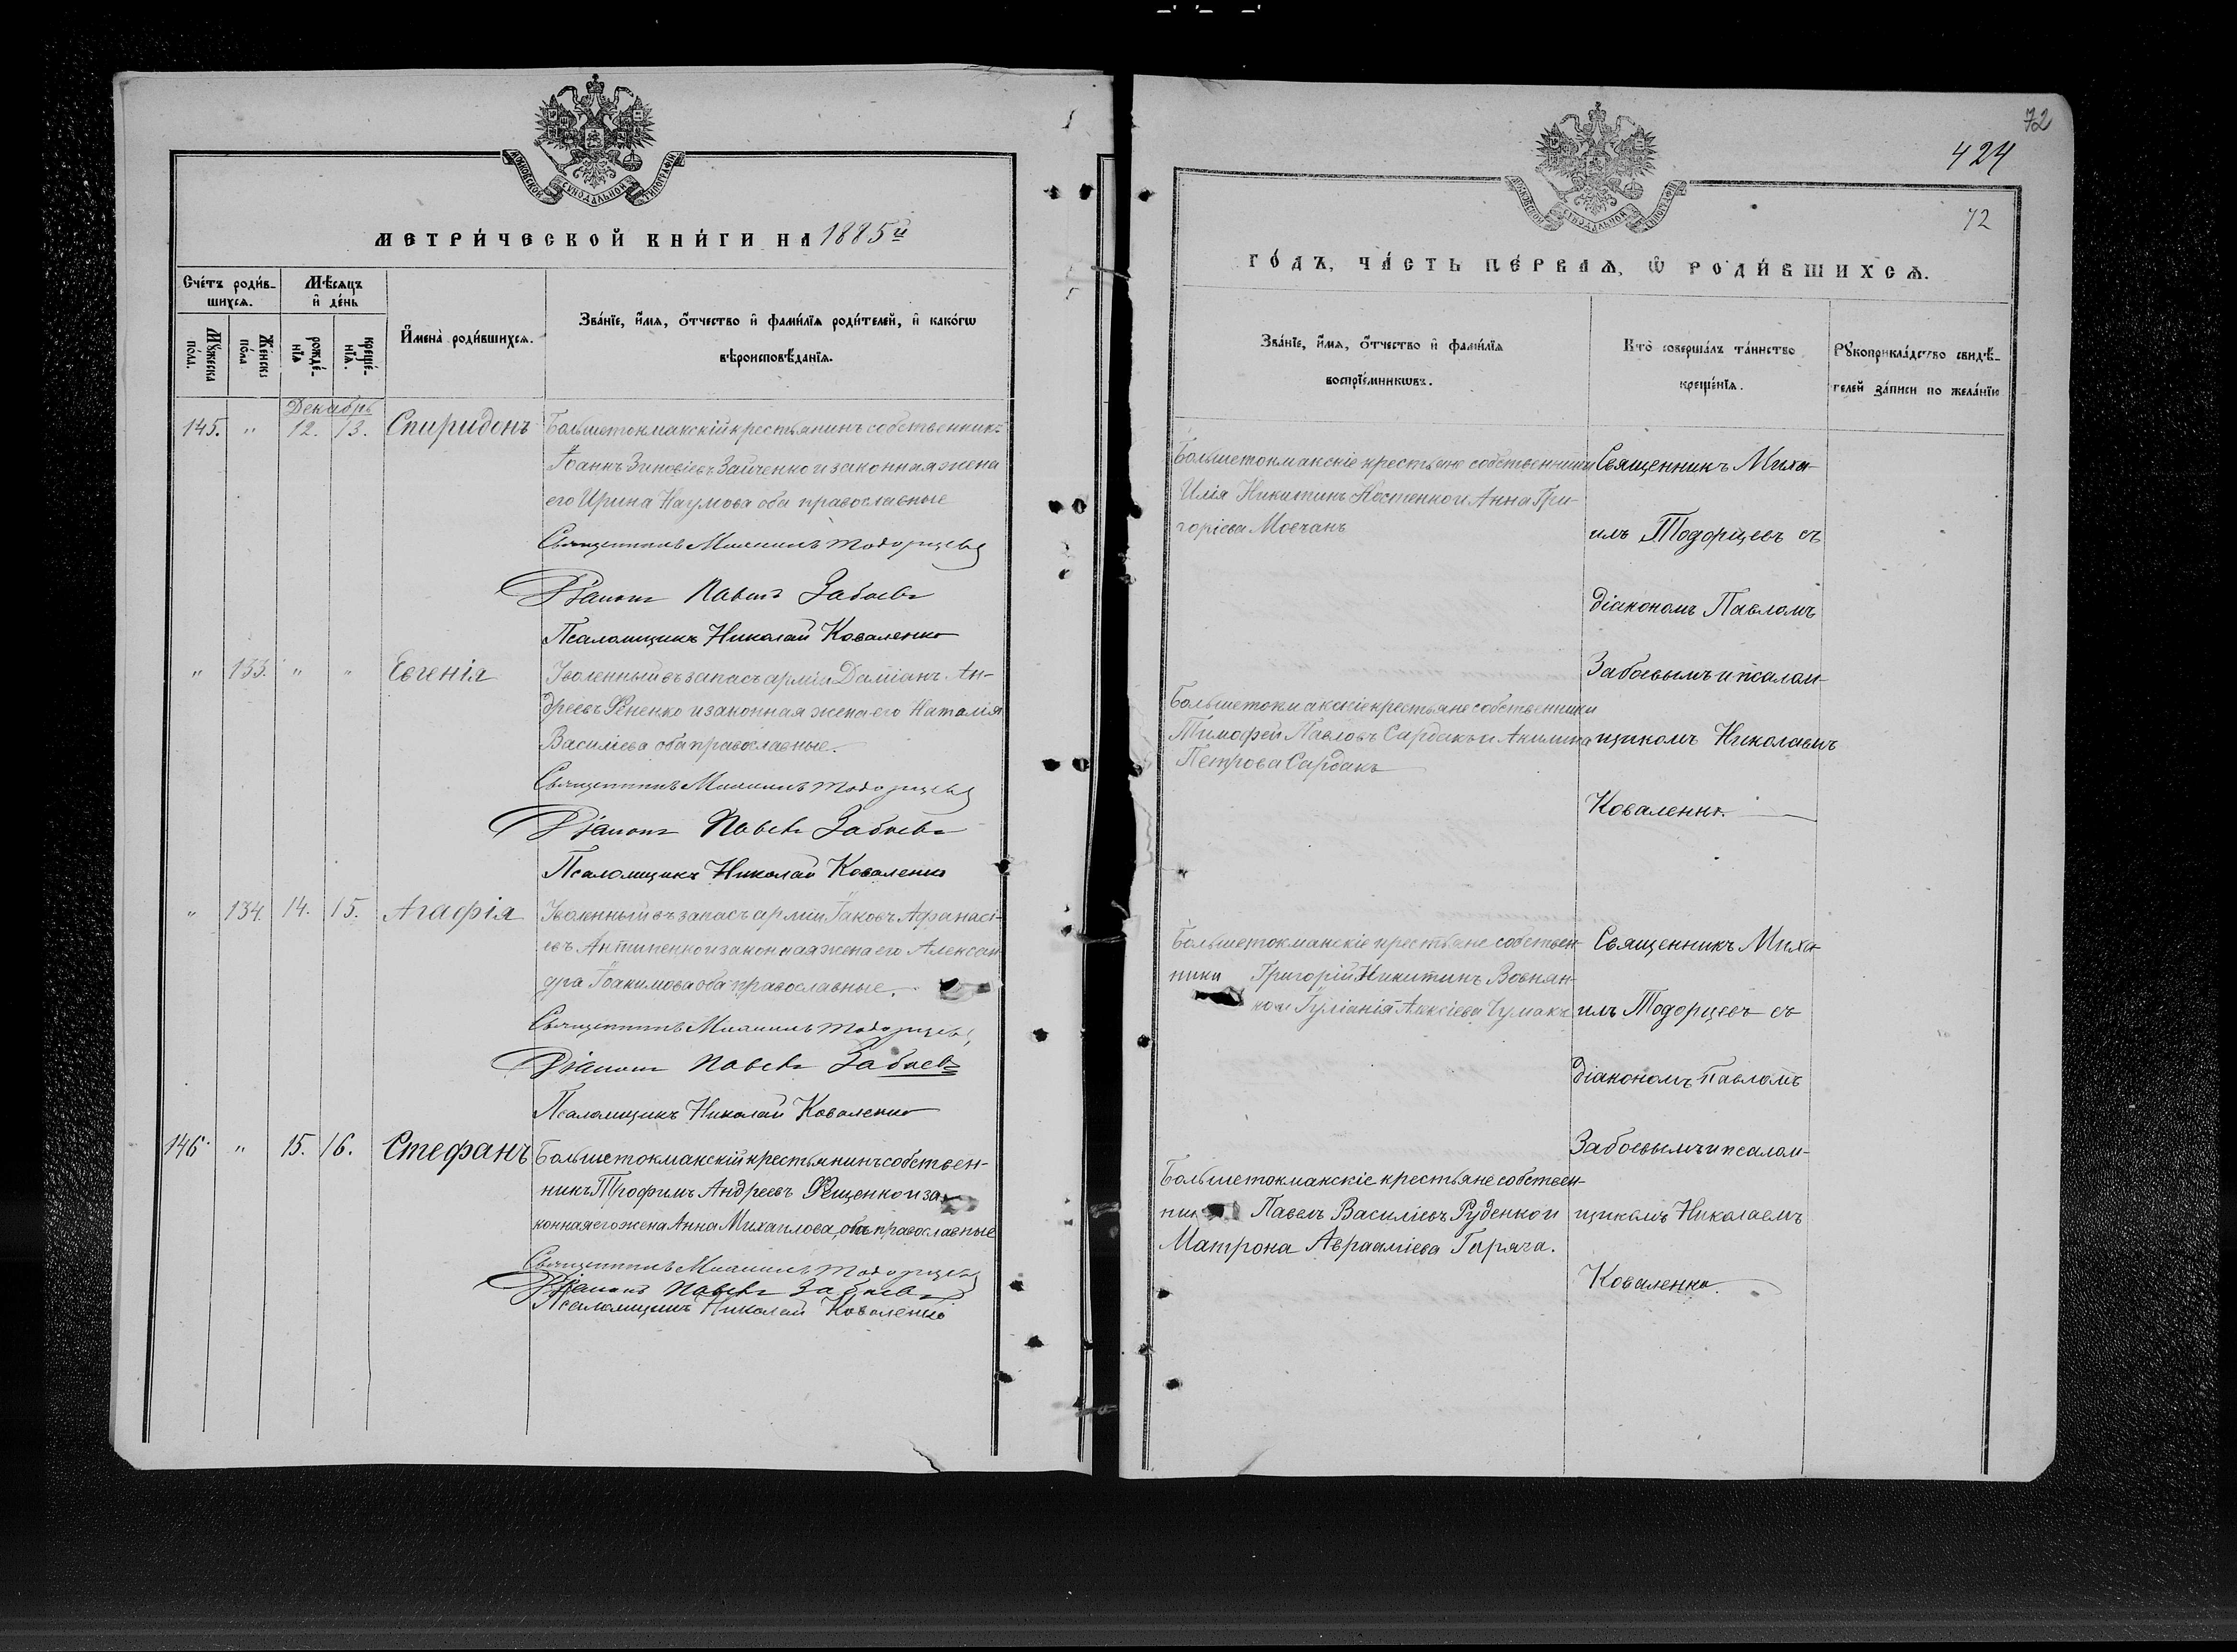 72
424
72
МОСКОВСКОЙ СѴНОДАЛЬНОЙ ТИПОГРАФІИ
МЕТРИ́ЧЕСКОЙ КНИ́ГИ НА 1885й
Сче́тъ роди́в-
шихсѧ.
Мѣ́сѧцъ
и҆ де́нь
И҆мена̀ роди́вшихсѧ.
Зва́нїе, и҆́мѧ, ѻ҆́тчество и҆ фами́лїѧ роди́телей, и҆ како́гѡ
вѣроисповѣ́данїѧ.
Мꙋ́жеска
по́ла.
Же́нска
по́ла
рожде́-
нїѧ
креще́-
нїѧ.
Декабрь
145. " 12. 13. Спиридонъ Большетокмакскій крестьянинъ собственникъ
Іоаннъ Зиновіевъ Зайченко и законная жена
его Ирина Наумова оба православные
Священникъ Михаилъ Тодорцевъ
Діаконъ Павелъ Забоевъ
Псаломщикъ Николай Коваленко
" 133. " " Евгенія Уволенный въ запасъ арміи Даміанъ Ан-
дреевъ Фененко и законная жена его Наталія
Василіева оба православные.
Священникъ Михаилъ Тодорцевъ
Діаконъ Павелъ Забоевъ
Псаломщикъ Николай Коваленко
" 134. 14. 15. Агафія Уволенный въ запасъ арміи Іаковъ Афанасі-
евъ Антипенко и законная жена его Алексан
дра Іоакимова оба православные.
Священникъ Михаилъ Тодорцевъ
Діаконъ Павелъ Забоевъ
Псаломщикъ Николай Коваленко
146. " 15. 16. Стефанъ Большетокмакскій крестьянинъ собствен-
никъ Трофимъ Андреевъ Фещенко и за
конная его жена Анна Михаилова, оба православные
Священникъ Михаилъ Тодорцевъ
Діаконъ Павелъ Забоевъ
Псаломщикъ Николай Коваленко
МОСКОВСКОЙ СѴНОДАЛЬНОЙ ТИПОГРАФІИ
ГО́ДЪ, ЧА́СТЬ ПЕ́РВАѦ, Ѡ҆ РОДИ́ВШИХСѦ.
Зва́нїе, и҆́мѧ, ѻ҆́тчество и҆ фами́лїѧ
воспрїе́мникѡвъ.
Кто̀ соверша́лъ та́инство
креще́нїѧ.
Рꙋкоприкла́дство свидѣ́-
телей за́писи по жела́нїю
Большетокмакскіе крестьяне собственники
Илія Никитинъ Костенко и Анна Гри-
горіева Мовчанъ
Священникъ Миха-
илъ Тодорцевъ съ
діакономъ Павломъ
Забоевымъ и псалом-
щикомъ Николаемъ
Коваленко.
Большетокмакскіе крестьяне собственники
Тимофей Павловъ Сардакъ и Акилина
Петрова Сардакъ
Большетокмакскіе крестьяне собствен-
ники Григорій Никитинъ Вовнян-
ко и Іуліанія Алексіева Чумакъ
Священникъ Миха-
илъ Тодорцевъ съ
діакономъ Павломъ
Забоевымъ и псалом-
щикомъ Николаемъ
Коваленко.
Большетокмакскіе крестьяне собствен-
ник Павелъ Василіевъ Руденко и
Матрона Авраамiева Гаряча.